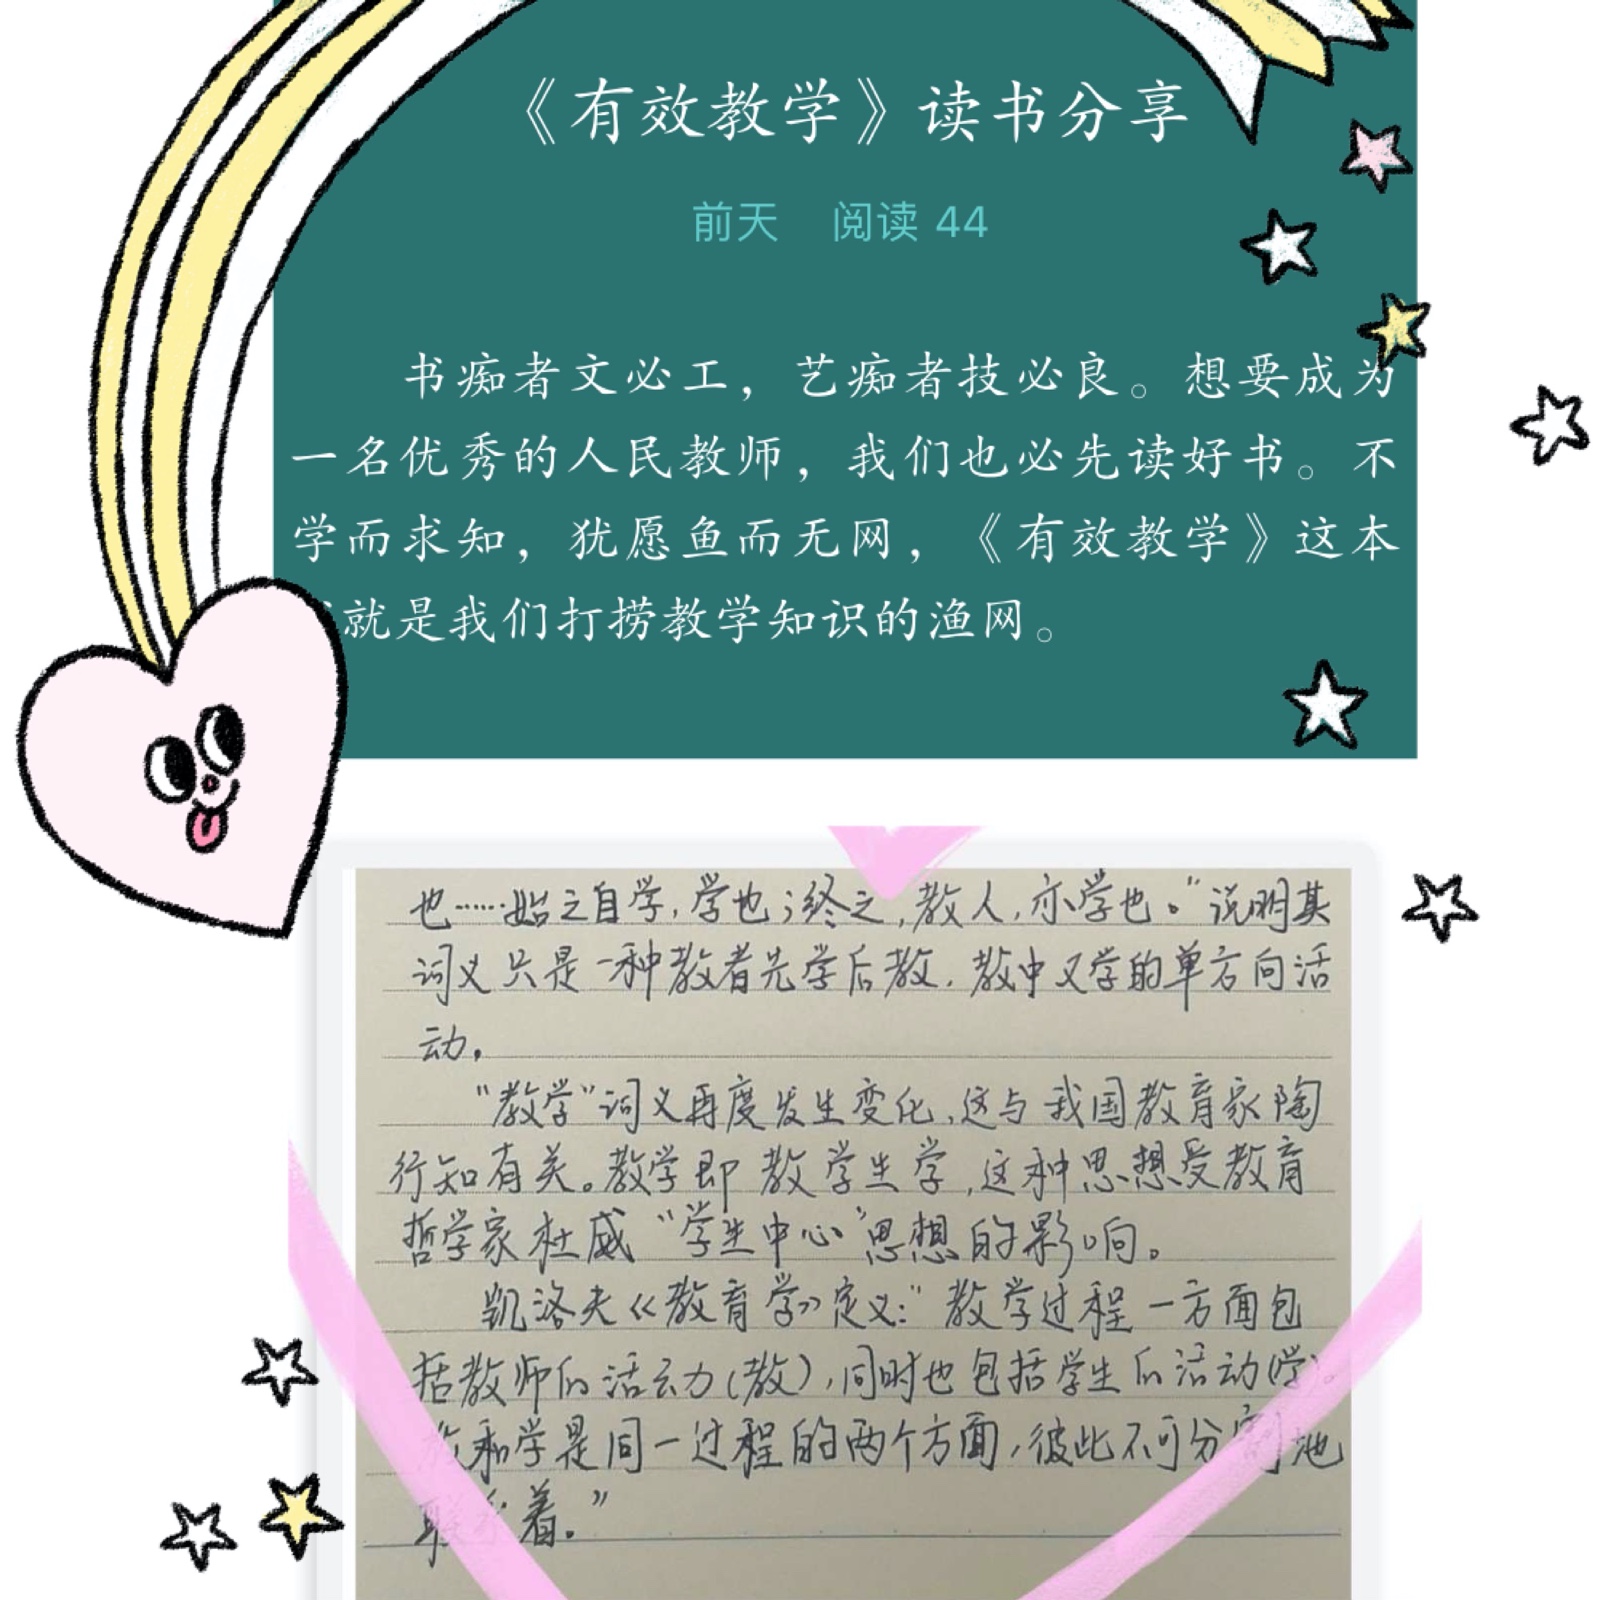 《有效教学》读书分享
前天 阅读 44
书痴者文必工，艺痴者技必良。想要成为
一名优秀的人民教师，我们也必先读好书。不
学而求知，犹愿鱼而无网，《有效教学》这本
就是我们打捞教学知识的渔网。
也……始之自学，学也；终之，教人，亦学也。”说明其
词义只是一种教者先学后教，教中又学的单方向活
动。
“教学”词义再度发生变化，这与我国教育家陶
行知有关。教学即教学生学，这种思想受教育
哲学家杜威“学生中心”思想的影响。
凯洛夫《教育学》定义：“教学过程一方面包
括教师的活动（教），同时也包括学生的活动（学）。
教和学是同一过程的两个方面，彼此不可分割地
联系着。”